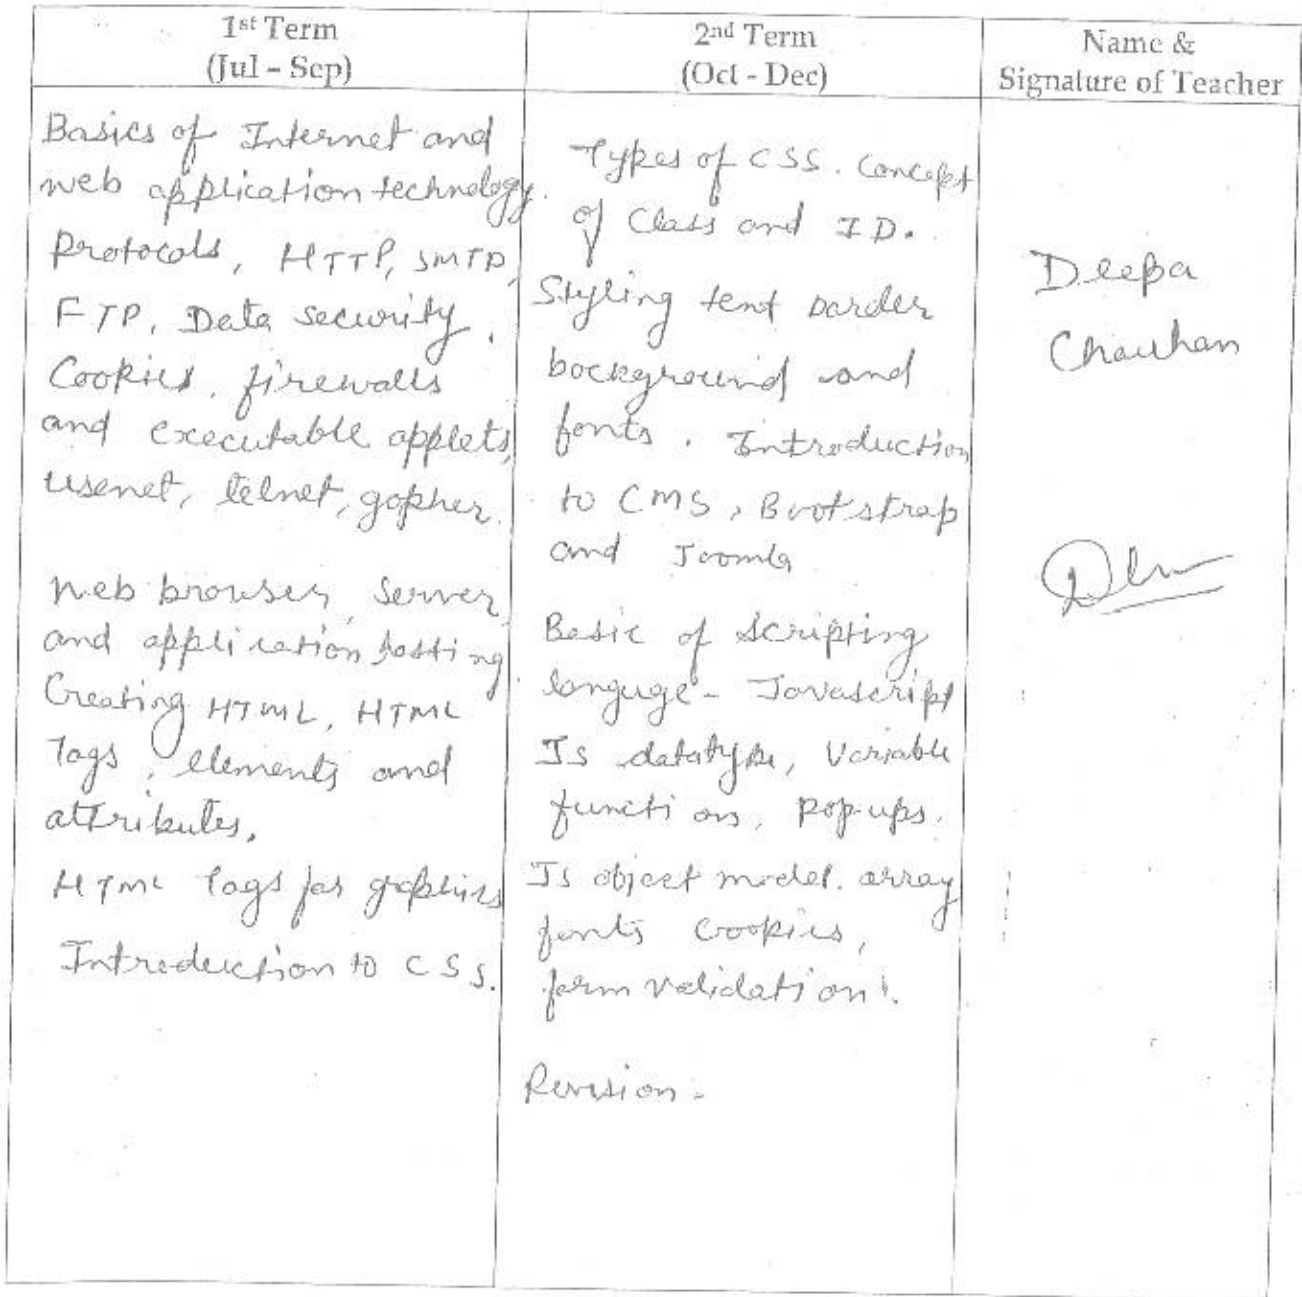 1st Term
(Jul - Sep)
Basics of Internet and
web application technology.
Protocols, HTTP, SMTP,
FTP, Data security.
Cookies, firewalls
and executable applets,
usenet, telnet, gopher.
Web browser, server,
and application hosting.
Creating HTML, HTML
Tags, elements and
attributes.
HTML Tags for graphics
Introduction to CSS.
2nd Term
(Oct - Dec)
Types of CSS. Concept
of Class and ID.
Styling text border
background and
fonts. Introduction
to CMS, Bootstrap
and Joomla
Basic of scripting
languge - Javascript
Js datatype, Variable
functions, Pop-ups.
Js object model. array
fonts cookies,
form validation.
Revision.
Name &
Signature of Teacher
Deepa
Chauhan